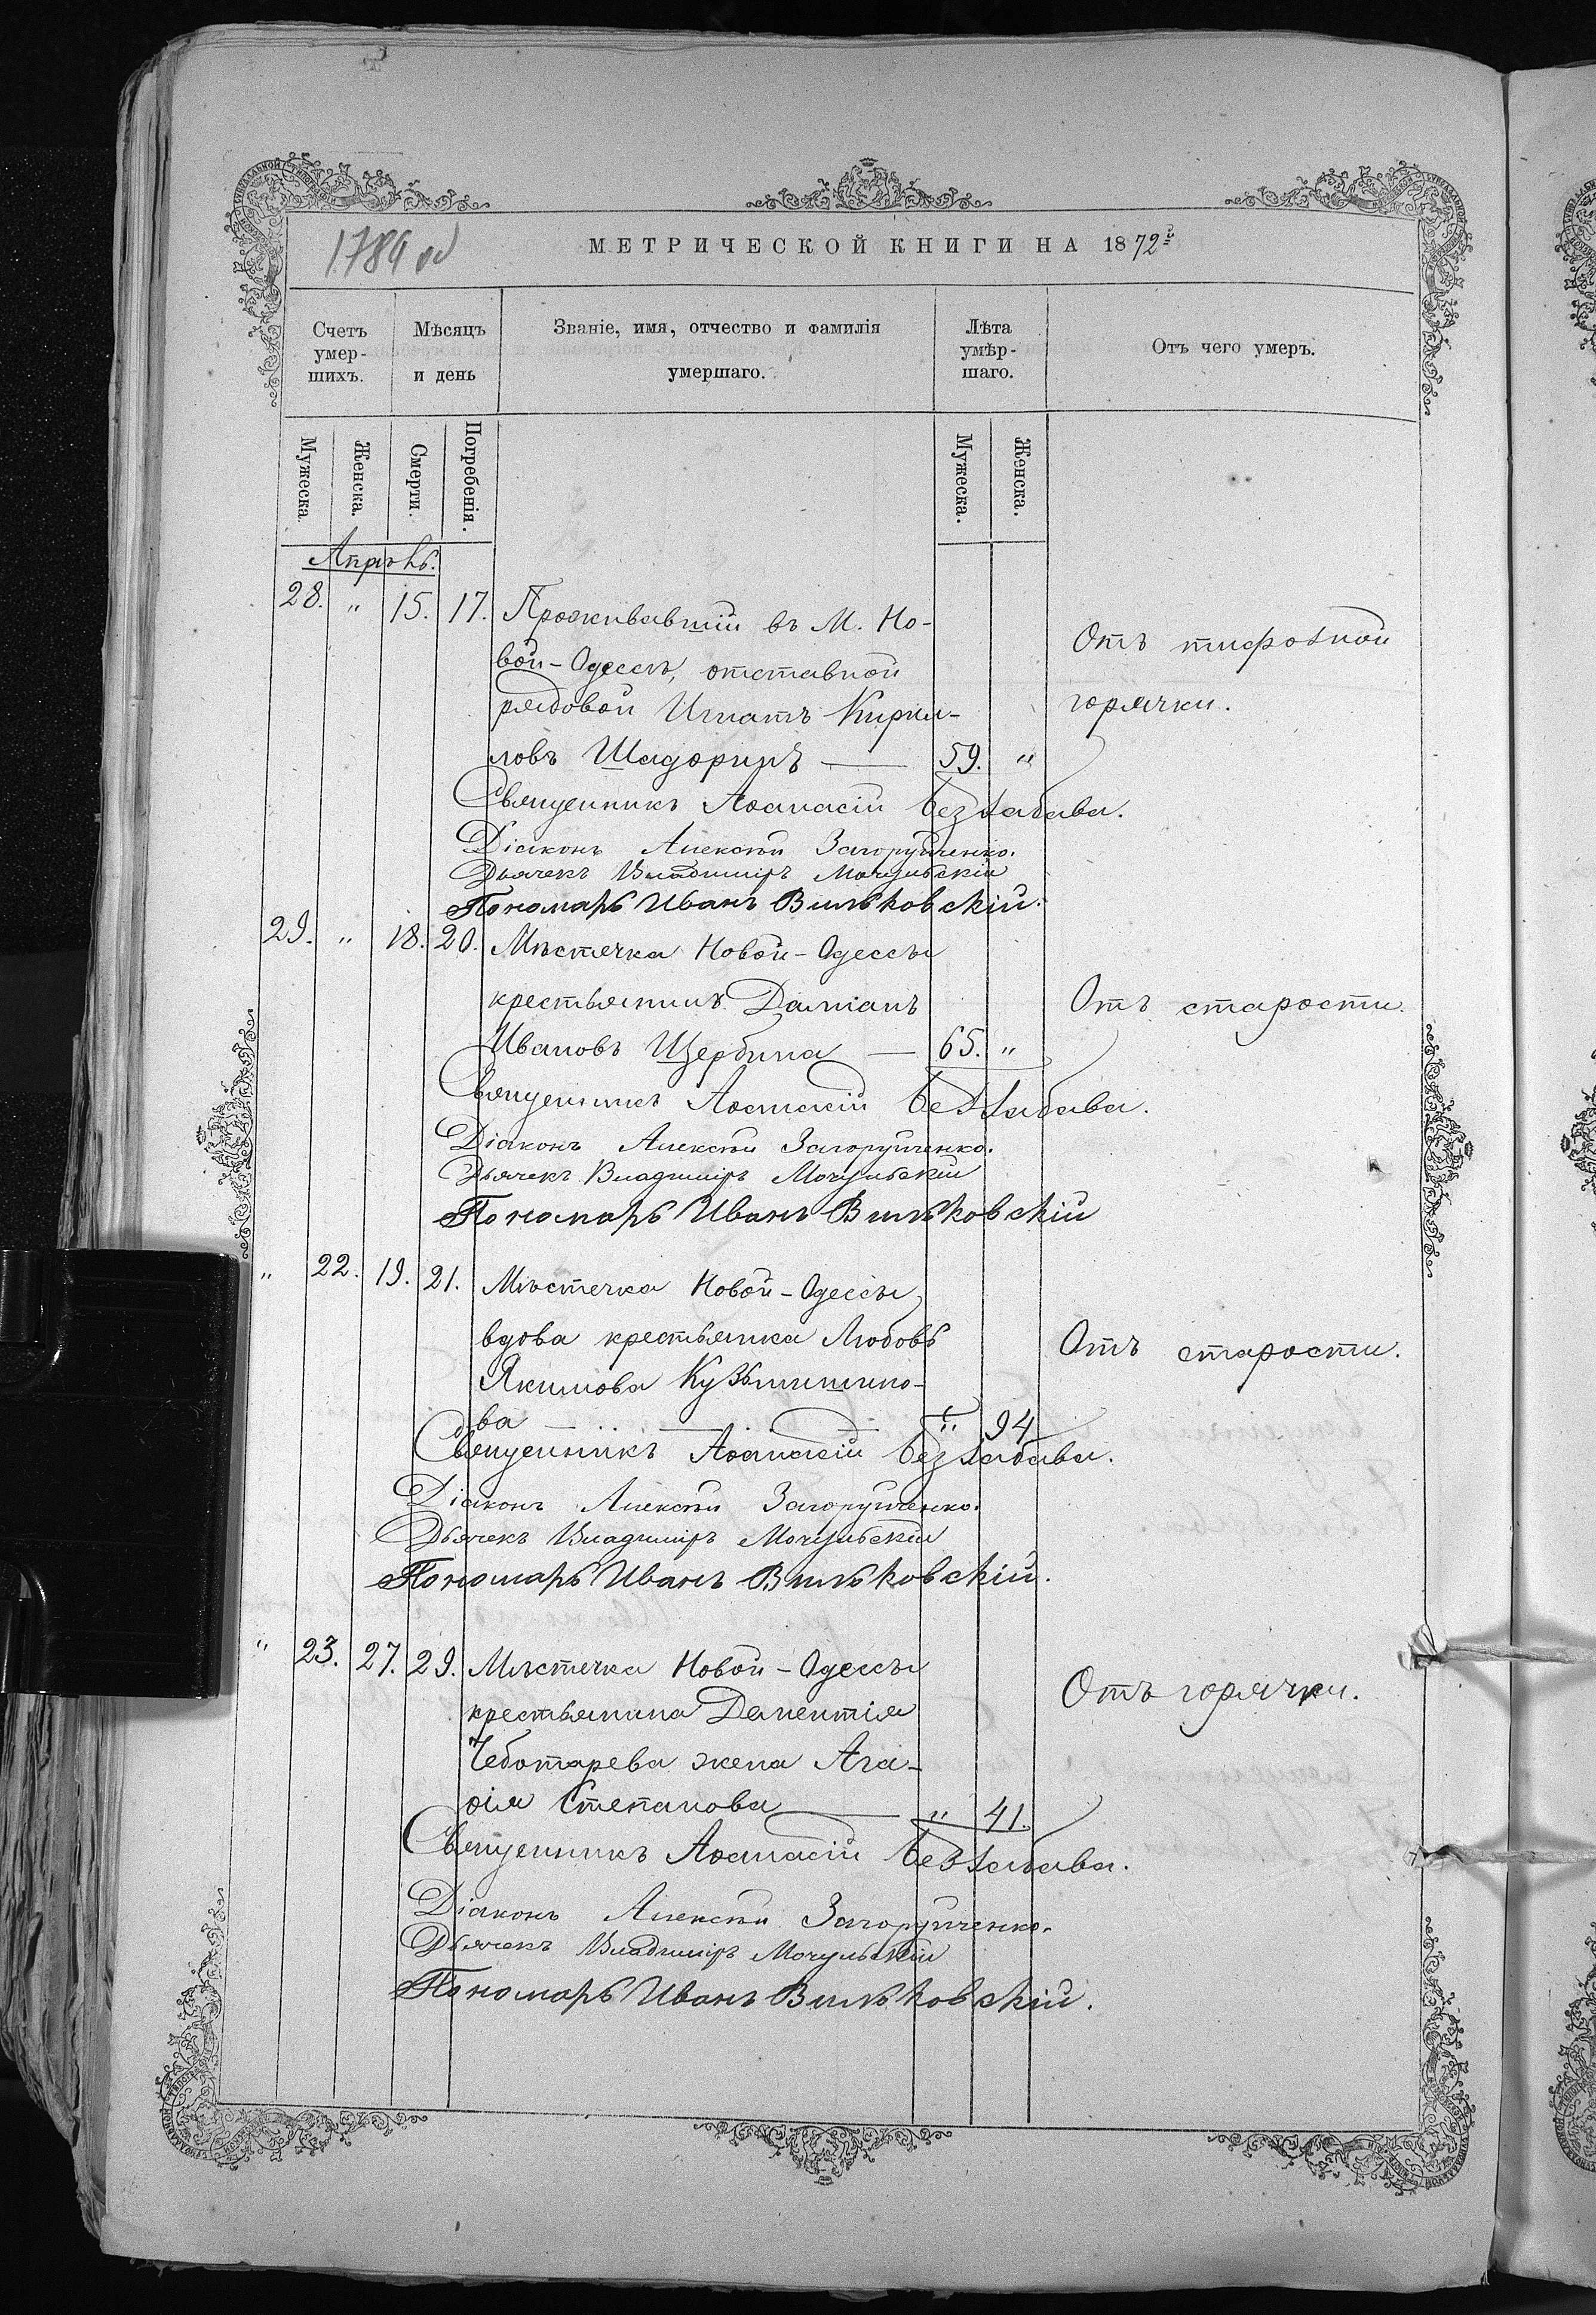 1789 об
МЕТРИЧЕСКОЙ КНИГИ НА 1872й
Счетъ умер-шихъ.
Мѣсяцъ и день
Званіе, имя, отчество и фамилія умершаго.
Лѣта умѣр-шаго.
Отъ чего умеръ.
Мужеска. Женска. Смерти. Погребенія. Мужеска. Женска.
Апрѣль.
28. " 15. 17. Проживавшій въ М. Но-
вой-Одессѣ, отставной
Отъ тифозной
рядовой Игнатъ Кирил-
горячки.
ловъ Шадоринъ — 59. "
Священникъ Аѳанасій Беззабава.
Діаконъ Алексѣй Загоруйченко.
Дьячекъ Владиміръ Мочульскій
Пономарь Иванъ Вильковскій.
29. " 18. 20. Мѣстечка Новой-Одессы
крестьянинъ Даміанъ
Отъ старости.
Ивановъ Щербина — 65. "
Священникъ Аѳанасій Беззабава.
Діаконъ Алексѣй Загоруйченко.
Дьячекъ Владиміръ Мочульскій
Пономарь Иванъ Вильковскій
" 22. 19. 21. Мѣстечка Новой-Одессы,
вдова крестьянка Любовь
Отъ старости.
Якимова Кузьминшно-
ва — " 94
Священникъ Аѳанасій Беззабава.
Діаконъ Алексѣй Загоруйченко.
Дьячекъ Владиміръ Мочульскій
Пономарь Иванъ Вильковскій.
" 23. 27. 29. Мѣстечка Новой-Одессы
Отъ горячки.
крестьянина Дементія
Чеботарева жена Ага-
ѳія Степанова — " 41.
Священникъ Аѳанасій Беззабава.
Діаконъ Алексѣй Загоруйченко.
Дьячекъ Владиміръ Мочульскій
Пономарь Иванъ Вильковскій.